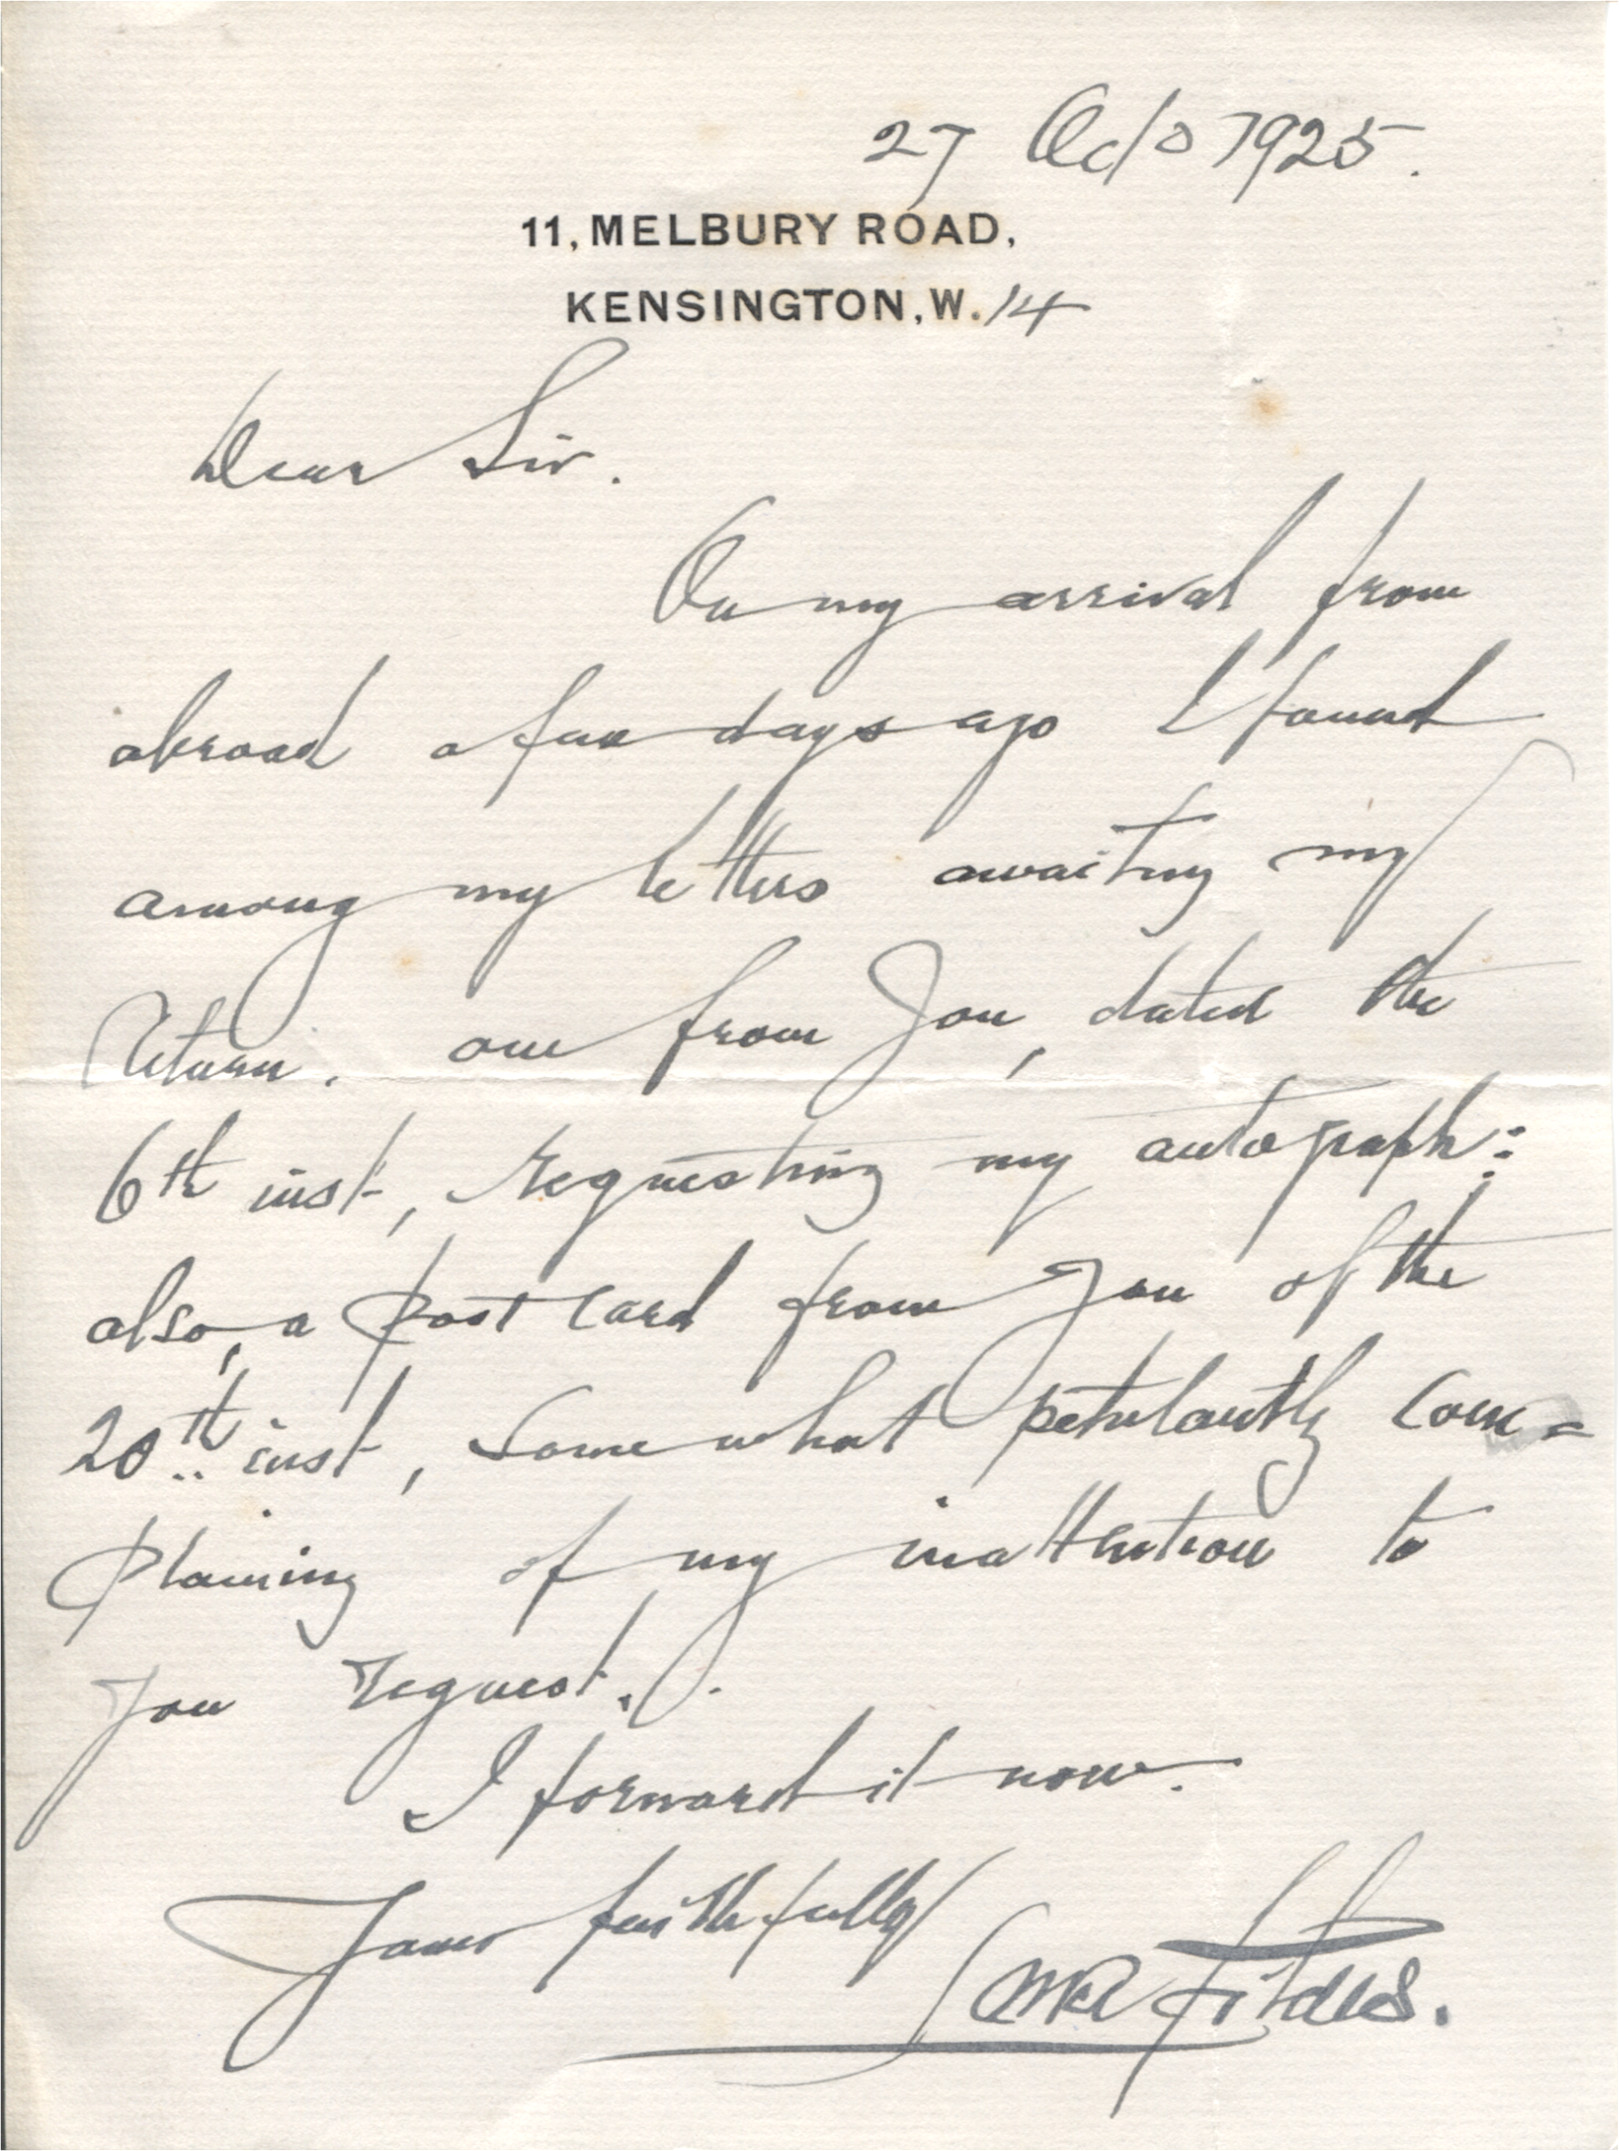 27 Oct 1925.
11, MELBURY ROAD,
KENSINGTON, W. 14
Dear Sir.
On my arrival from
abroad a few days ago I found
among my letters awaiting my
return, one from you, dated the
6th inst, requesting my autograph:
also, a post card from you of the
20th inst, somewhat petulantly com=
plaining of my inattention to
you request.
I forward it now.
Yours faithfully
Luke Fildes.